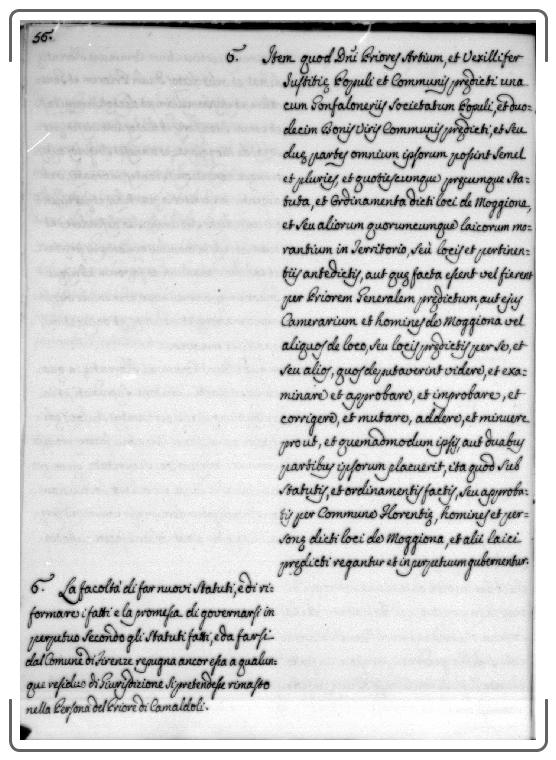 56.
6. Item quod Dn̄i Priores Artium, et Vexillifer
Justitię Populi et Communis prędicti una
cum Gonfaloneriis Societatum Populi, et duo=
decim Bonis Viris Communis prędicti, et seu
duę partes omnium ipsorum possint semel
et pluries, et quotiescumque pręcumque Sta=
tuta, et Ordinamenta dicti loci de Moggiona,
et seu aliorum quorumcumque laicorum mo=
rantium in Territorio, seù locis et pertinen=
tiis antedictis, aut quę facta essent vel fierent
per Priorem Generalem prędictum aut ejus
Camerarium et homines de Moggiona vel
aliquos de loco, seu locis prędictis per se, et
seu alios, quos deputaverint videre, et exa=
minare et approbare, et improbare, et
corrigere, et mutare, addere, et minuere
prout, et quemadmodum ipsis, aut duabus
partibus ipsorum placuerit, ita quod sub
Statutis, et ordinamentis factis, seu approba=
tis per Commune Florentię, homines et per=
sonę dicti loci de Moggiona, et alii laici
prędicti regantur et in perpetuum gubernentur.
6. La facoltà di far nuovi Statuti, e di ri=
formare i fatti e la promessa di governarsi in
perpetuo secondo gli Statuti fatti, e da farsi
dal Comune di Firenze repugna ancor essa a qualun=
que residuo di Giurisdizione si pretendesse rimasto
nella Persona del Priore di Camaldoli.